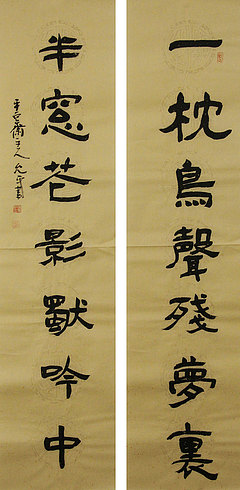 一枕鳥聲殘夢裏
半窓花影獨吟中